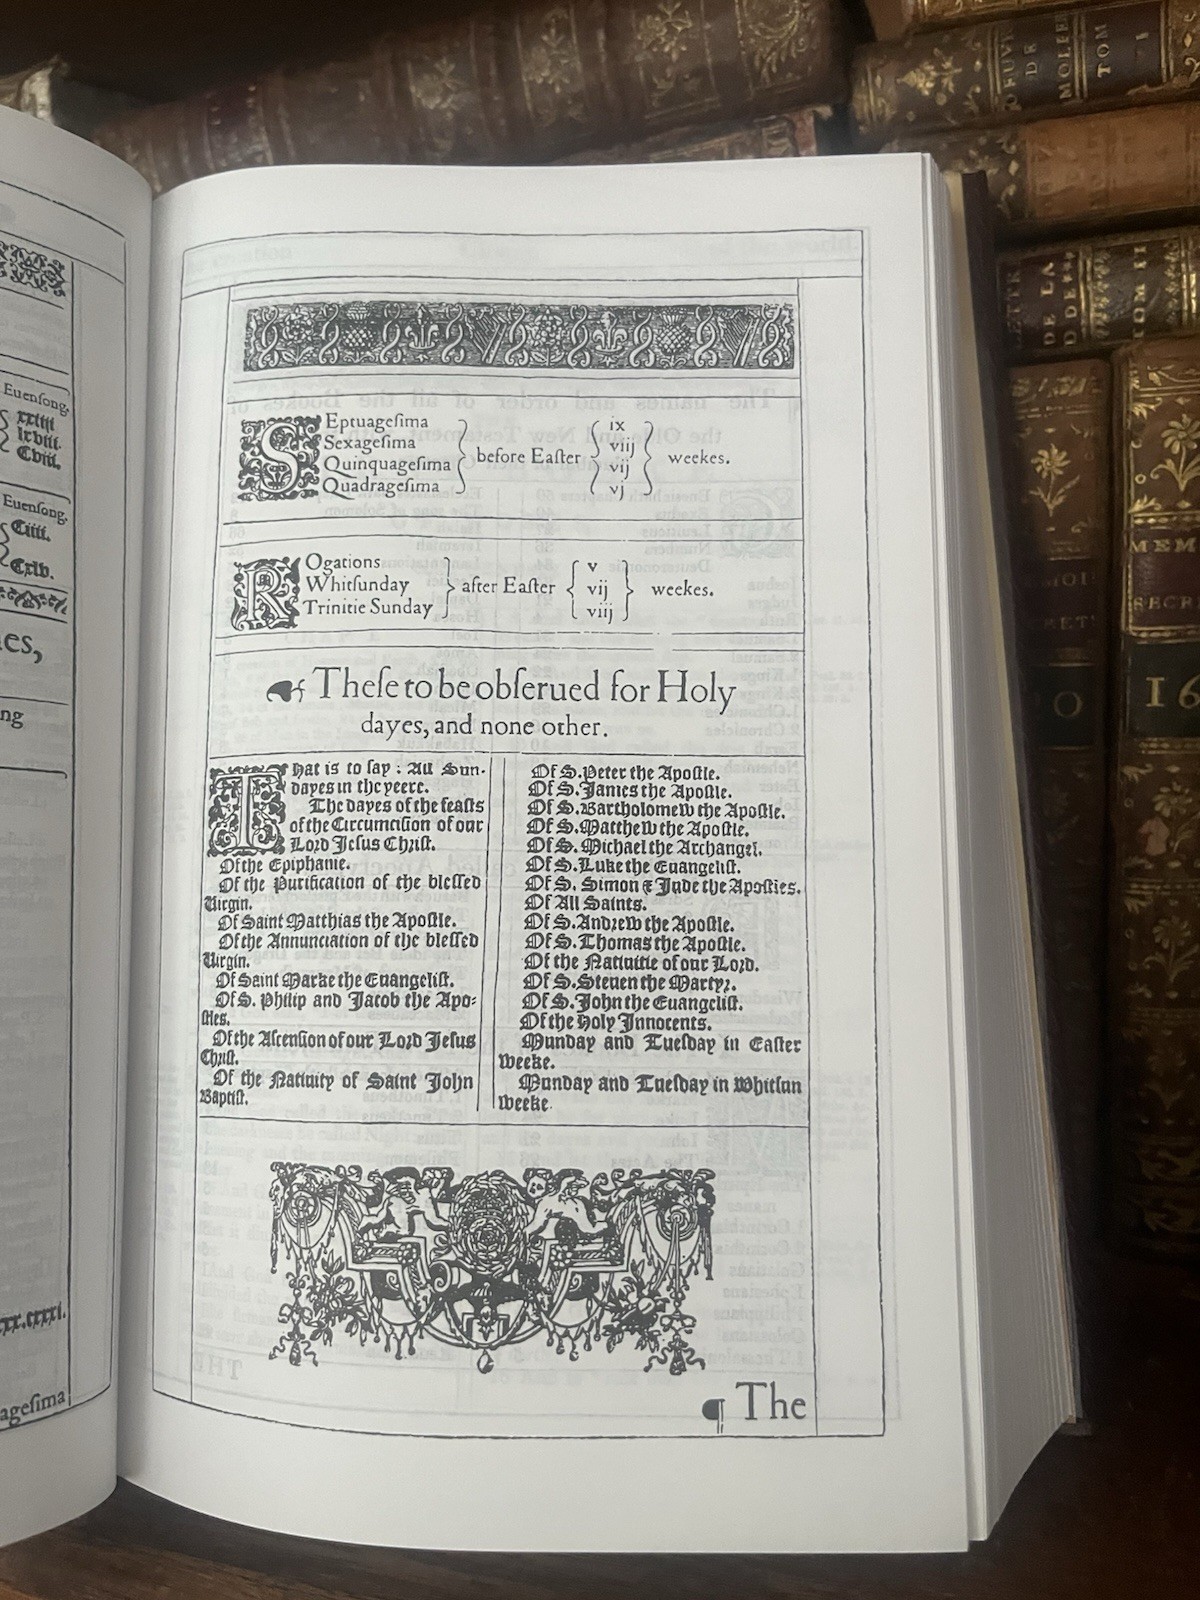 Euensong,
xxiiii
lxviii.
Cviii.
Euensong,
Ciiii.
Cxlv.
nes,
ng
agesima
Septuagesima
Sexagesima
Quinquagesima
Quadragesima
before Easter
ix
viij
vij
vj
weekes.
Rogations
Whitsunday
Trinitie Sunday
after Easter
v
vij
viij
weekes.
☙ These to be obserued for Holy
dayes, and none other.
That is to say: All Sun-
dayes in the yeere.
The dayes of the feasts
of the Circumcision of our
Lord Jesus Christ.
Of the Epiphanie.
Of the Purification of the blessed
Uirgin.
Of Saint Matthias the Apostle.
Of the Annunciation of the blessed
Uirgin.
Of Saint Marke the Euangelist.
Of S. Philip and Jacob the Apo-
stles.
Of the Ascension of our Lord Jesus
Christ.
Of the Natiuity of Saint John
Baptist.
Of S. Peter the Apostle.
Of S. James the Apostle.
Of S. Bartholomew the Apostle.
Of S. Matthew the Apostle.
Of S. Michael the Archangel.
Of S. Luke the Euangelist.
Of S. Simon & Jude the Apostles.
Of All Saints.
Of S. Andrew the Apostle.
Of S. Thomas the Apostle.
Of the Natiuitie of our Lord.
Of S. Steuen the Martyr.
Of S. John the Euangelist.
Of the Holy Innocents.
Munday and Tuesday in Easter
weeke.
Munday and Tuesday in Whitsun
weeke.
¶ The
OEUVR
DE
MOLIER
TOM
I
LETTR
DE LA
TOM II
MEM
SECRE
16